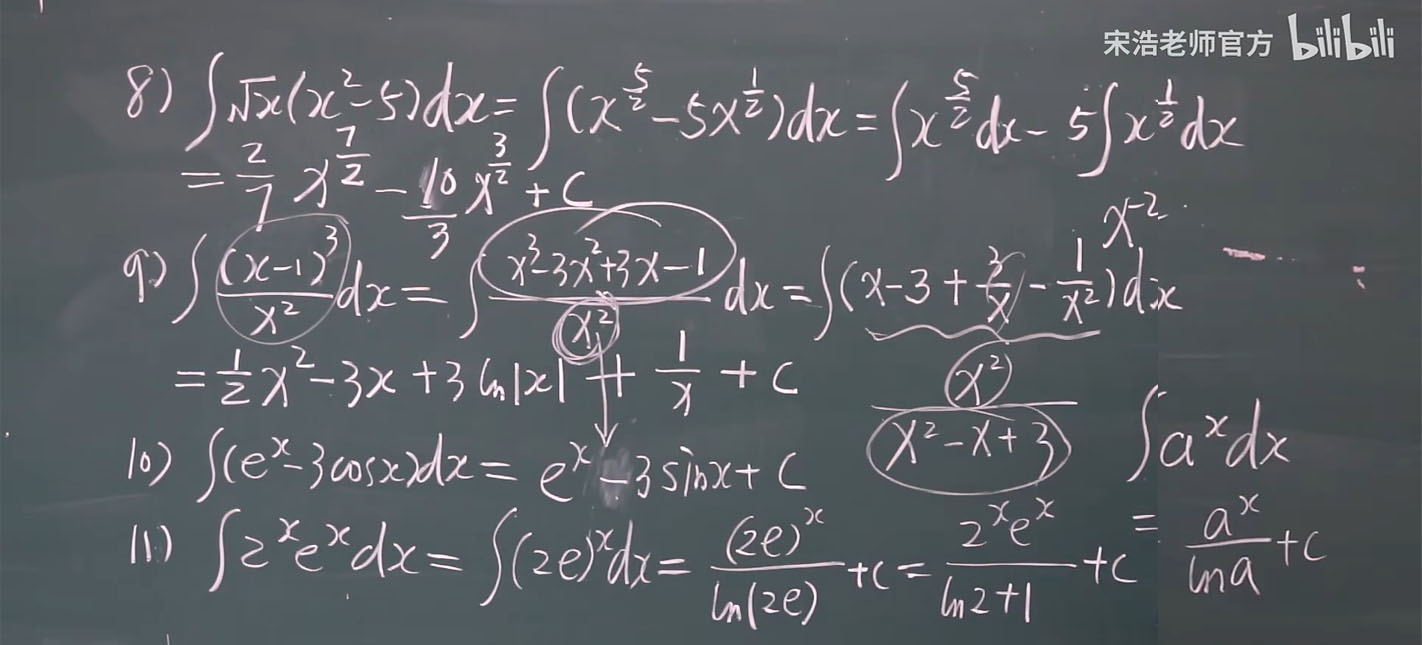 宋浩老师官方 bilibili
8) ∫√x(x²-5)dx = ∫(x^{5/2} - 5x^{1/2})dx = ∫x^{5/2}dx - 5∫x^{1/2}dx
= 2/7 x^{7/2} - 10/3 x^{3/2} + C
x^{-2}
9) ∫(x-1)³/x² dx = ∫(x³-3x²+3x-1)/x² dx = ∫(x-3+3/x-1/x²)dx
= 1/2 x² - 3x + 3ln|x| + 1/x + C
x²/(x²-x+3)
10) ∫(e^x-3cosx)dx = e^x - 3sinx + C
∫a^x dx
= a^x/lna + C
11) ∫2^x e^x dx = ∫(2e)^x dx = (2e)^x/ln(2e) + C = 2^x e^x/(ln2+1) + C